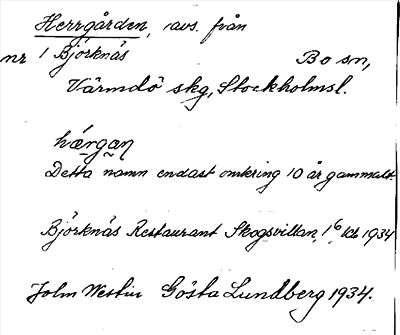 Herrgården, avs. från
nr 1 Björknäs Bo sn,
Värmdö skg, Stockholmsl.
hæ̨rgan
Detta namn endast omkring 10 år gammalt.
Björknäs Restaurant Skogsvillan, 1934
John Westin Gösta Lundberg 1934.